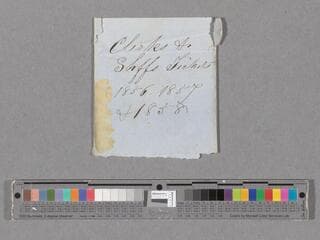 Clerks &
Shffs Tickets
1856. 1857
& 1858